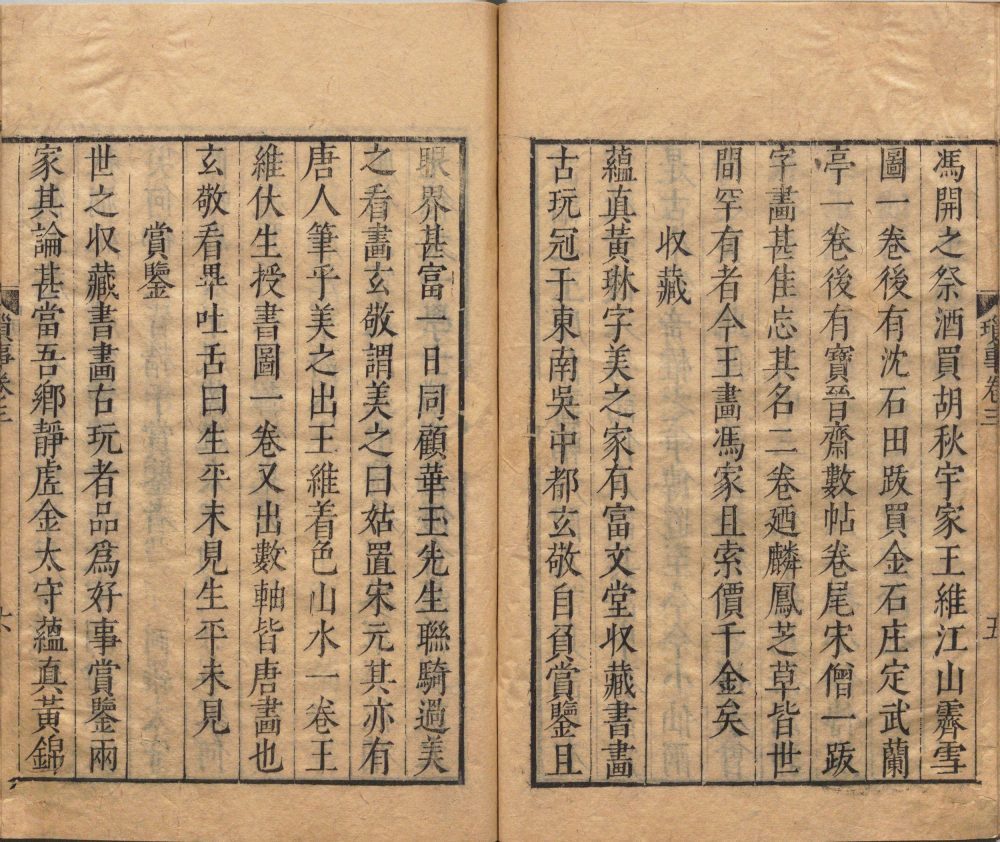 馮開之祭酒買胡秋宇家王維江山霽雪
圖一卷後有沈石田跋買金石庄定武蘭
亭一卷後有寶晉齋數帖卷尾宋僧一跋
字畫甚佳忘其名二卷廼麟鳳芝草皆世
間罕有者今王畫馮家且索價千金矣
收藏
蘊真黃琳字美之家有富文堂收藏書畫
古玩冠于東南吳中都玄敬自負賞鑒且
瑣事卷三
五
眼界甚富一日同顧華玉先生聯騎過美
之看畫玄敬謂美之曰姑置宋元其亦有
唐人筆乎美之出王維着色山水一卷王
維伏生授書圖一卷又出數軸皆唐畫也
玄敬看畢吐舌曰生平未見生平未見
賞鑒
世之收藏書畫古玩者品爲好事賞鑒兩
家其論甚當吾鄉靜虛金太守蘊真黃錦
瑣事卷三
六